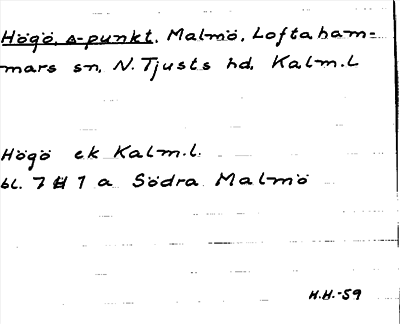 Högö, △-punkt, Malmö, Loftaham=
mars sn, N. Tjusts hd, Kalm.L
Högö ek Kalm.l.
bl. 7 H 1 a Södra Malmö
H.H.-59